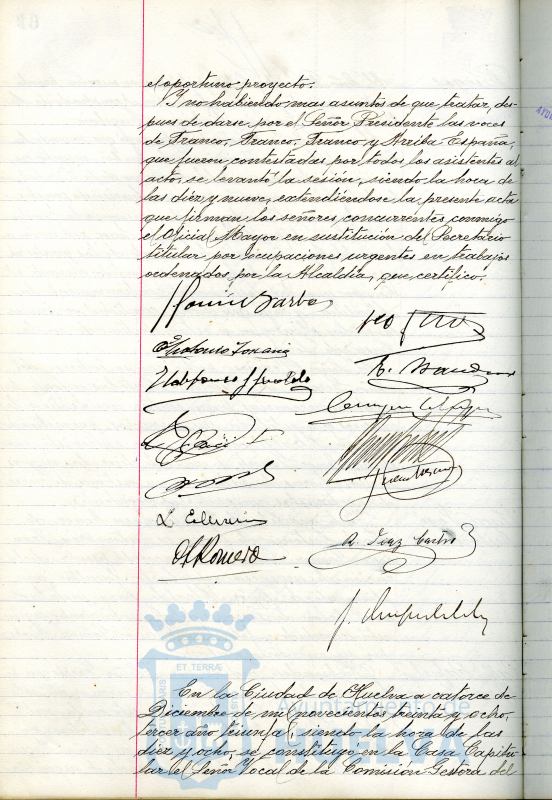 el oportuno proyecto.
Y no habiendo mas asuntos de que tratar, des-
pues de darse por el Señor Presidente las voces
de Franco, Franco, Franco y Arriba España,
que fueron contestadas por todos los asistentes al
acto, se levantó la sesión, siendo la hora de
las diez y nueve, extendiéndose la presente acta
que firman los señores concurrentes conmigo
el Oficial Mayor en sustitución del Secretario
titular por ocupaciones urgentes en trabajos
ordenados por la Alcaldía, que certifico.
Barba
Ildefonso
A. Romero
A. Diaz Castro
ET TERRÆ
Ayuntamiento de
HUELVA
En la Ciudad de Huelva a catorce de
Diciembre de mil novecientos treinta y ocho,
tercer año triunfal, siendo la hora de las
diez y ocho, se constituyó en la Casa Capitu-
lar el Señor Vocal de la Comisión Gestora del